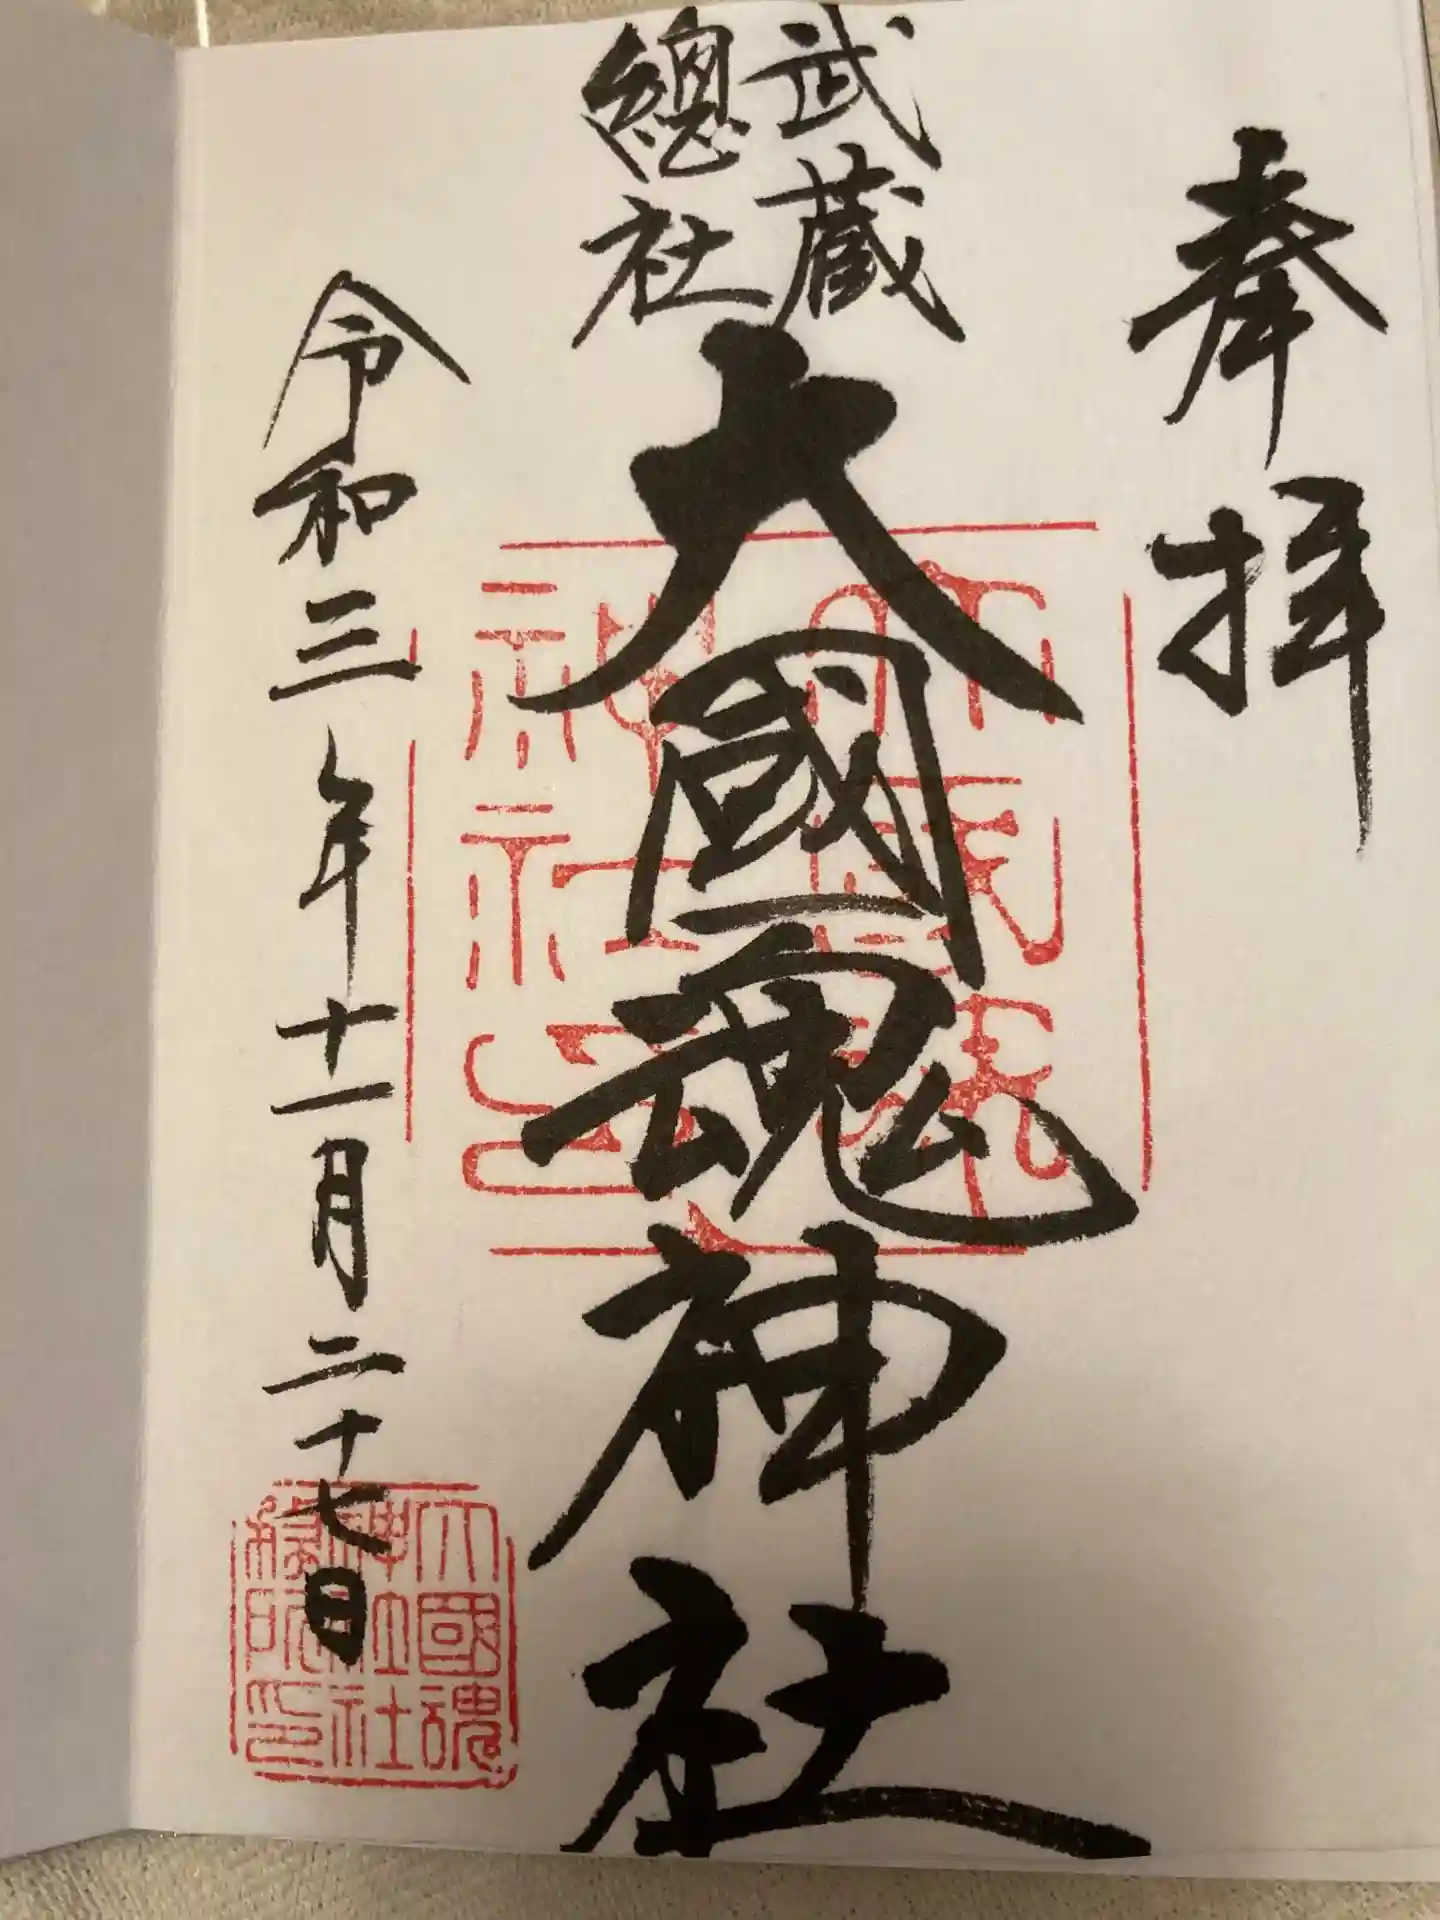 奉拝
武蔵
總社
大國魂神社
令和三年十一月二十七日
大國魂
神社
印
大國魂
神社
務所印